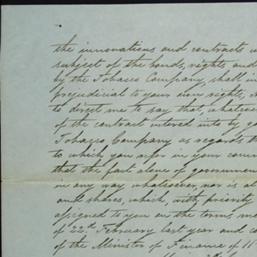 the innovations and contracts
subject of the bonds, rights and
by the Tobacco Company, shall in
prejudicial to your own rights,
to direct me to say, that whatever
of the contract intered into by
Tobacco Company as regards th
to which you refer in your comm
that the fact alone of governmen
in any way whatsoever, nor is al
and shares, which, with priority
assigned to you on the terms me
of 22nd February last year and co
of the Minister of Finance of 11